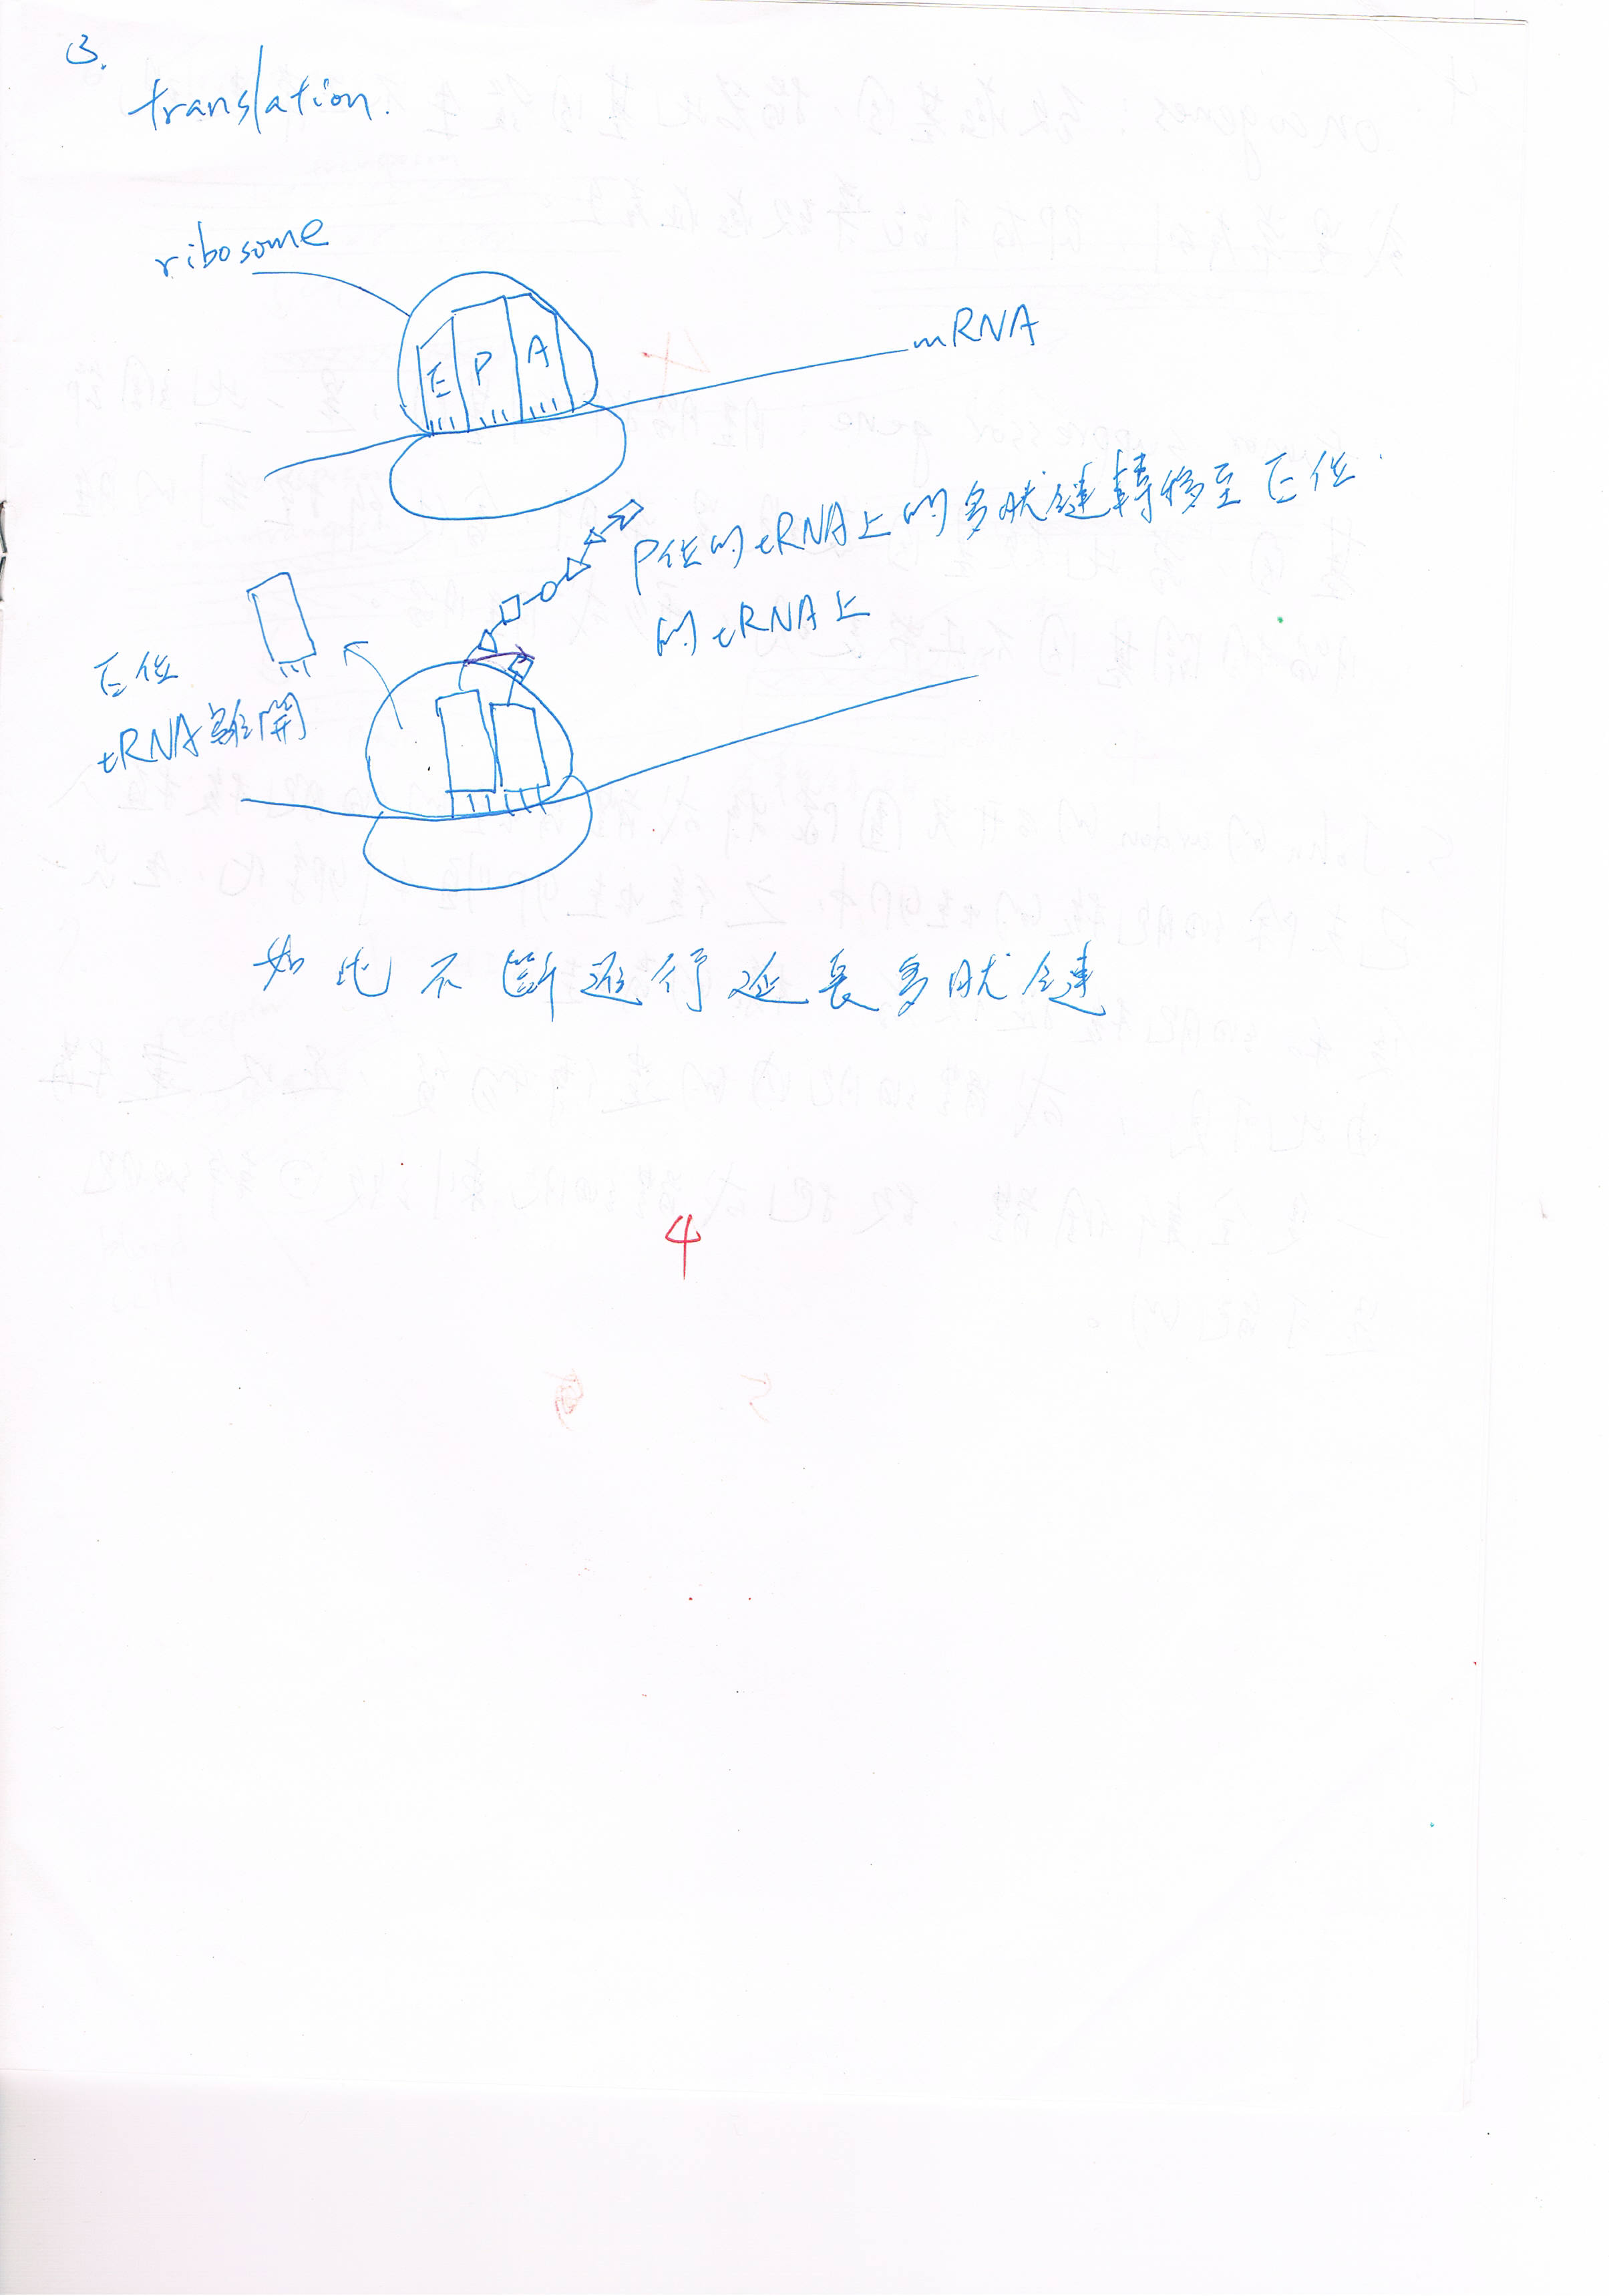 3.
translation.
ribosome
E P A
mRNA
P位的tRNA上的多肽鏈轉移至E位
的tRNA上
E位
tRNA離開
如此不斷進行延長多肽鏈
4